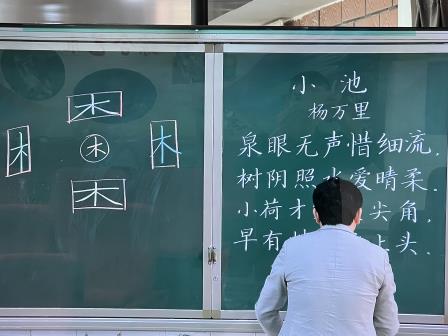 木
木 木 木
木
小池
杨万里
泉眼无声惜细流.
树阴照水爱晴柔.
小荷才 尖角,
早有 上头.